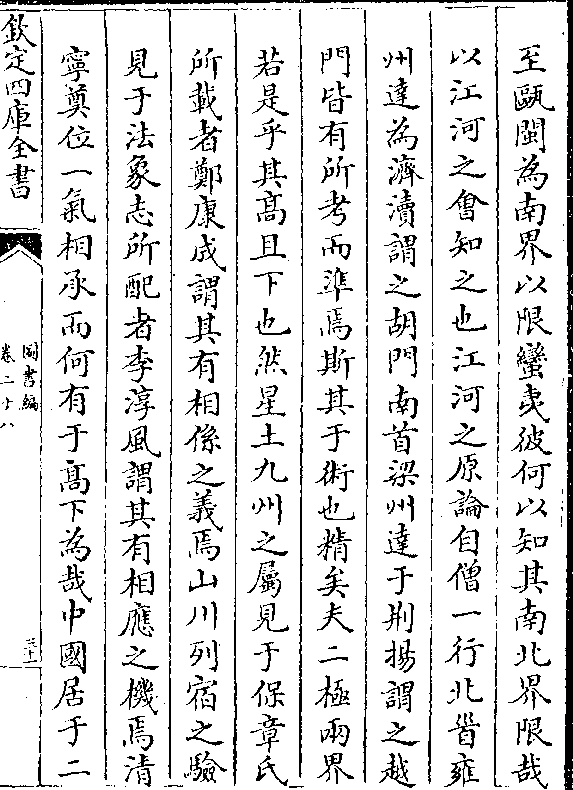 至甌閩為南界以限蠻夷彼何以知其南北界限哉
以江河之會知之也江河之原論自僧一行北首雍
州達為濟瀆謂之胡門南首梁州達于荆揚謂之越
門皆有所考而準焉斯其于術也精矣夫二極兩界
若是乎其髙且下也然星土九州之屬見于保章氏
所載者鄭康成謂其有相係之義焉山川列宿之驗
見于法象志所配者李淳風謂其有相應之機焉清
寧奠位一氣相承而何有于髙下為哉中國居于二
欽定四庫全書
圖書編
卷二十八